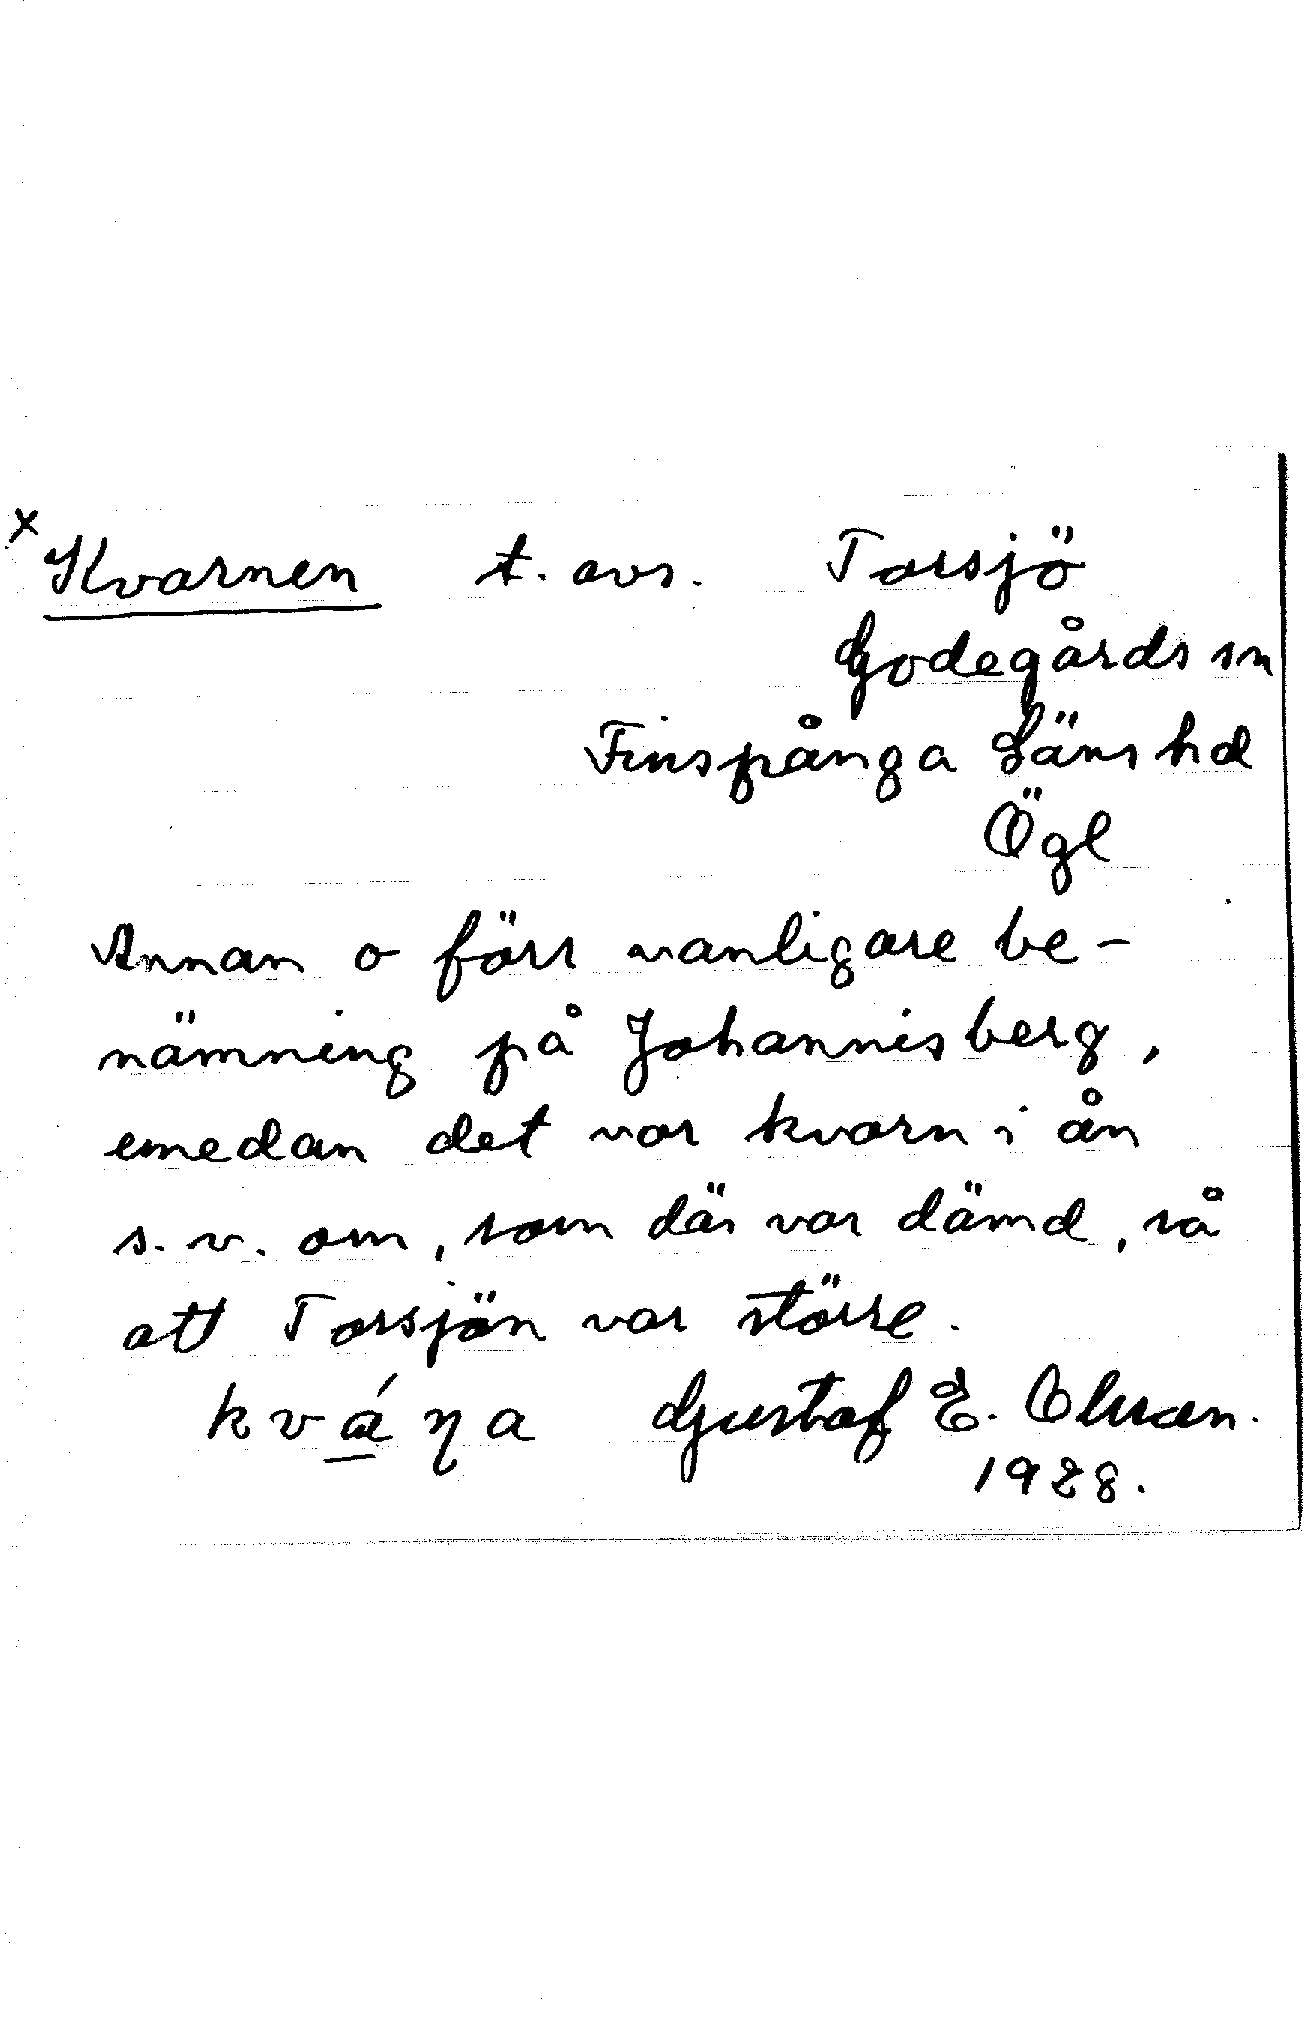 x Kvarnen t. avs. Torsjö
Godegårds sn
Finspånga Läns hd
Ögl
Annan o förr vanligare be-
nämning på Johannisberg,
emedan det var kvarn i ån
s. v. om, som där var dämd, så
att Torsjön var större.
kváꞃa Gustaf E. Olsson.
1928.